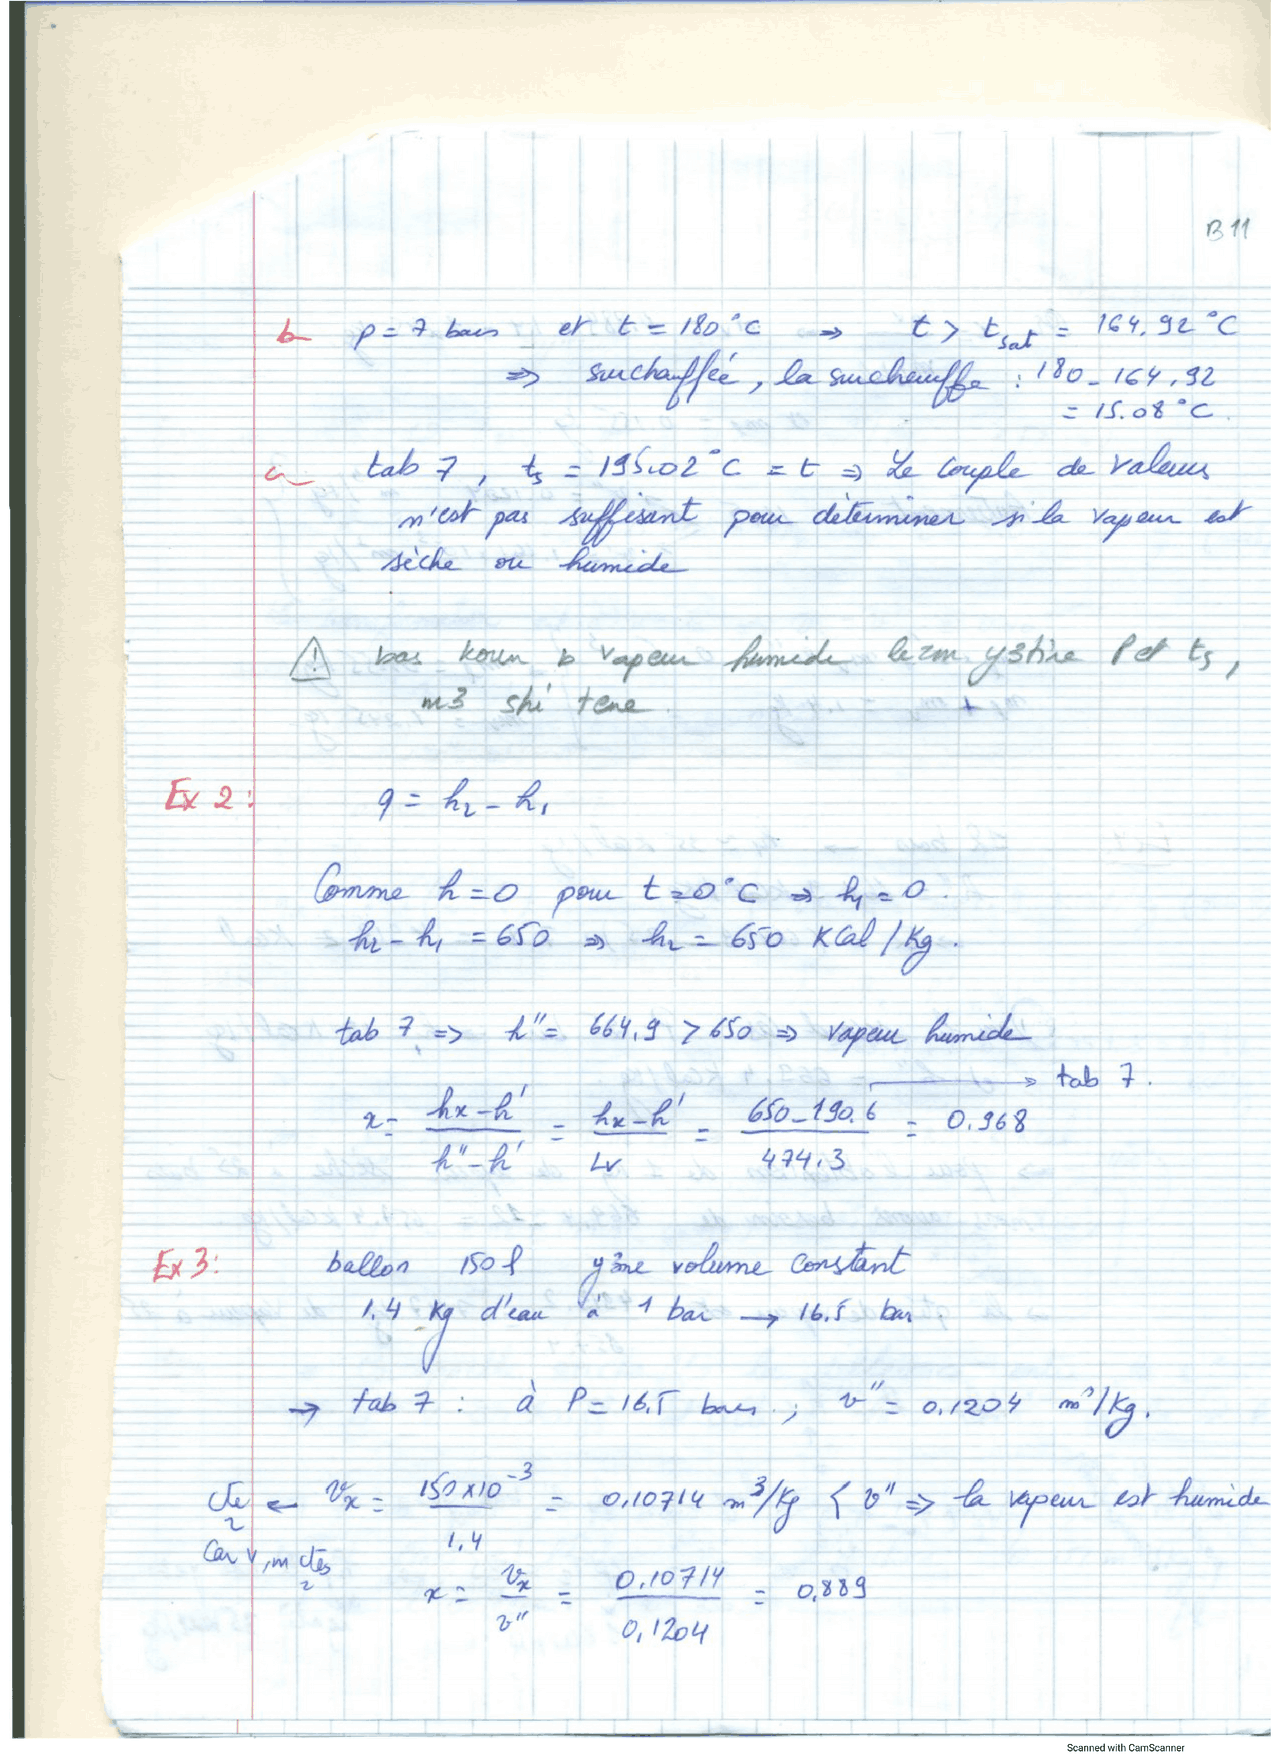 B 11
b p = 7 bars et t = 180 °C ⇒ t > t_sat = 164,92 °C
⇒ surchauffée, la surchauffe : 180 - 164,92
= 15.08 °C.
a tab 7, ts = 195.02 °C = t ⇒ Le couple de valeurs
n'est pas suffisant pour déterminer si la vapeur est
sèche ou humide
⚠ bas koun b vapeur humide lezm y3tine P et ts,
m3 shi tene.
Ex 2: q = h2 - h1
Comme h = 0 pour t = 0 °C ⇒ h1 = 0.
h2 - h1 = 650 ⇒ h2 = 650 KCal/Kg.
tab 7 ⇒ h'' = 664,9 > 650 ⇒ vapeur humide
→ tab 7.
x = (hx - h')/(h'' - h') = (hx - h')/Lv = (650 - 190.6)/474.3 = 0.968
Ex 3: ballon 150 l y3ne volume constant
1.4 Kg d'eau à 1 bar → 16.5 bar
→ tab 7 : à P = 16,5 bars ; v'' = 0,1204 m³/Kg.
cte ← vx = (150 x10^-3)/1,4 = 0,10714 m³/Kg < v'' ⇒ la vapeur est humide
Car v, m ctes
x = vx/v'' = 0,10714/0,1204 = 0,889
Scanned with CamScanner